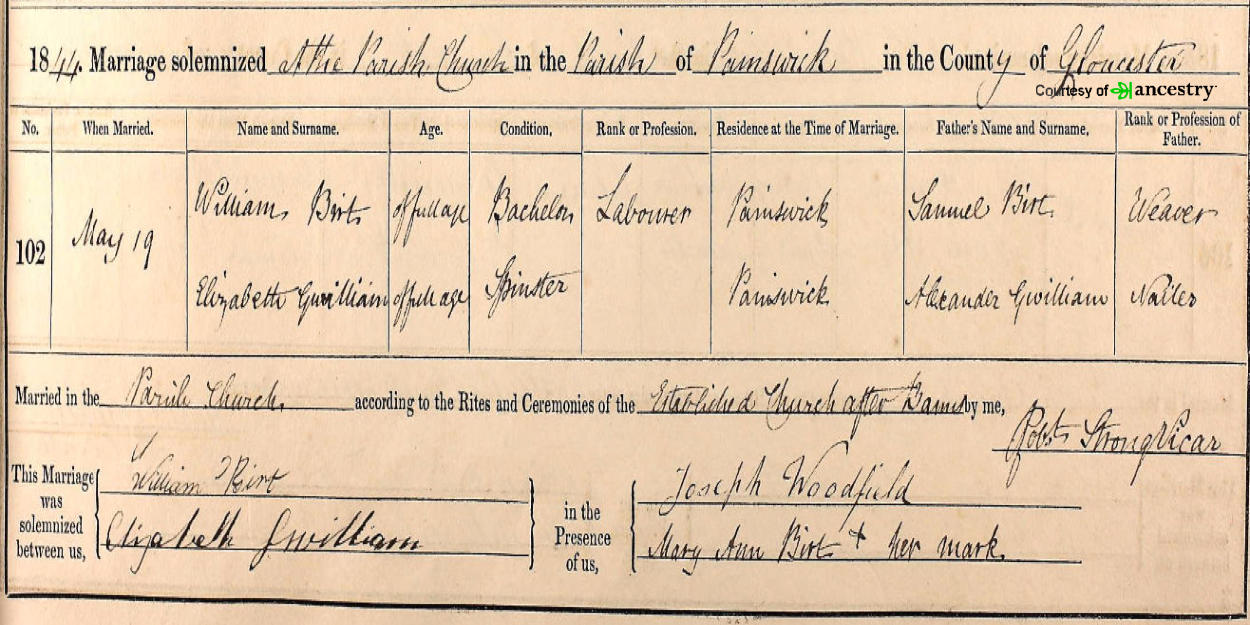 1844. Marriage solemnized at the Parish Church in the Parish of Painswick in the County of Gloucester
Courtesy of ancestry
No. When Married. Name and Surname. Age. Condition. Rank or Profession. Residence at the Time of Marriage. Father's Name and Surname. Rank or Profession of Father.
102 May 19 William Birt of full age Bachelor Labourer Painswick Samuel Birt Weaver
Elizabeth Gwilliam of full age Spinster Painswick Alexander Gwilliam Nailer
Married in the Parish Church according to the Rites and Ceremonies of the Established Church after Banns by me,
Robt Strong Vicar
This Marriage was solemnized between us, William Birt in the Presence of us, Joseph Woodfield
Elizabeth Gwilliam Mary Ann Birt + her mark